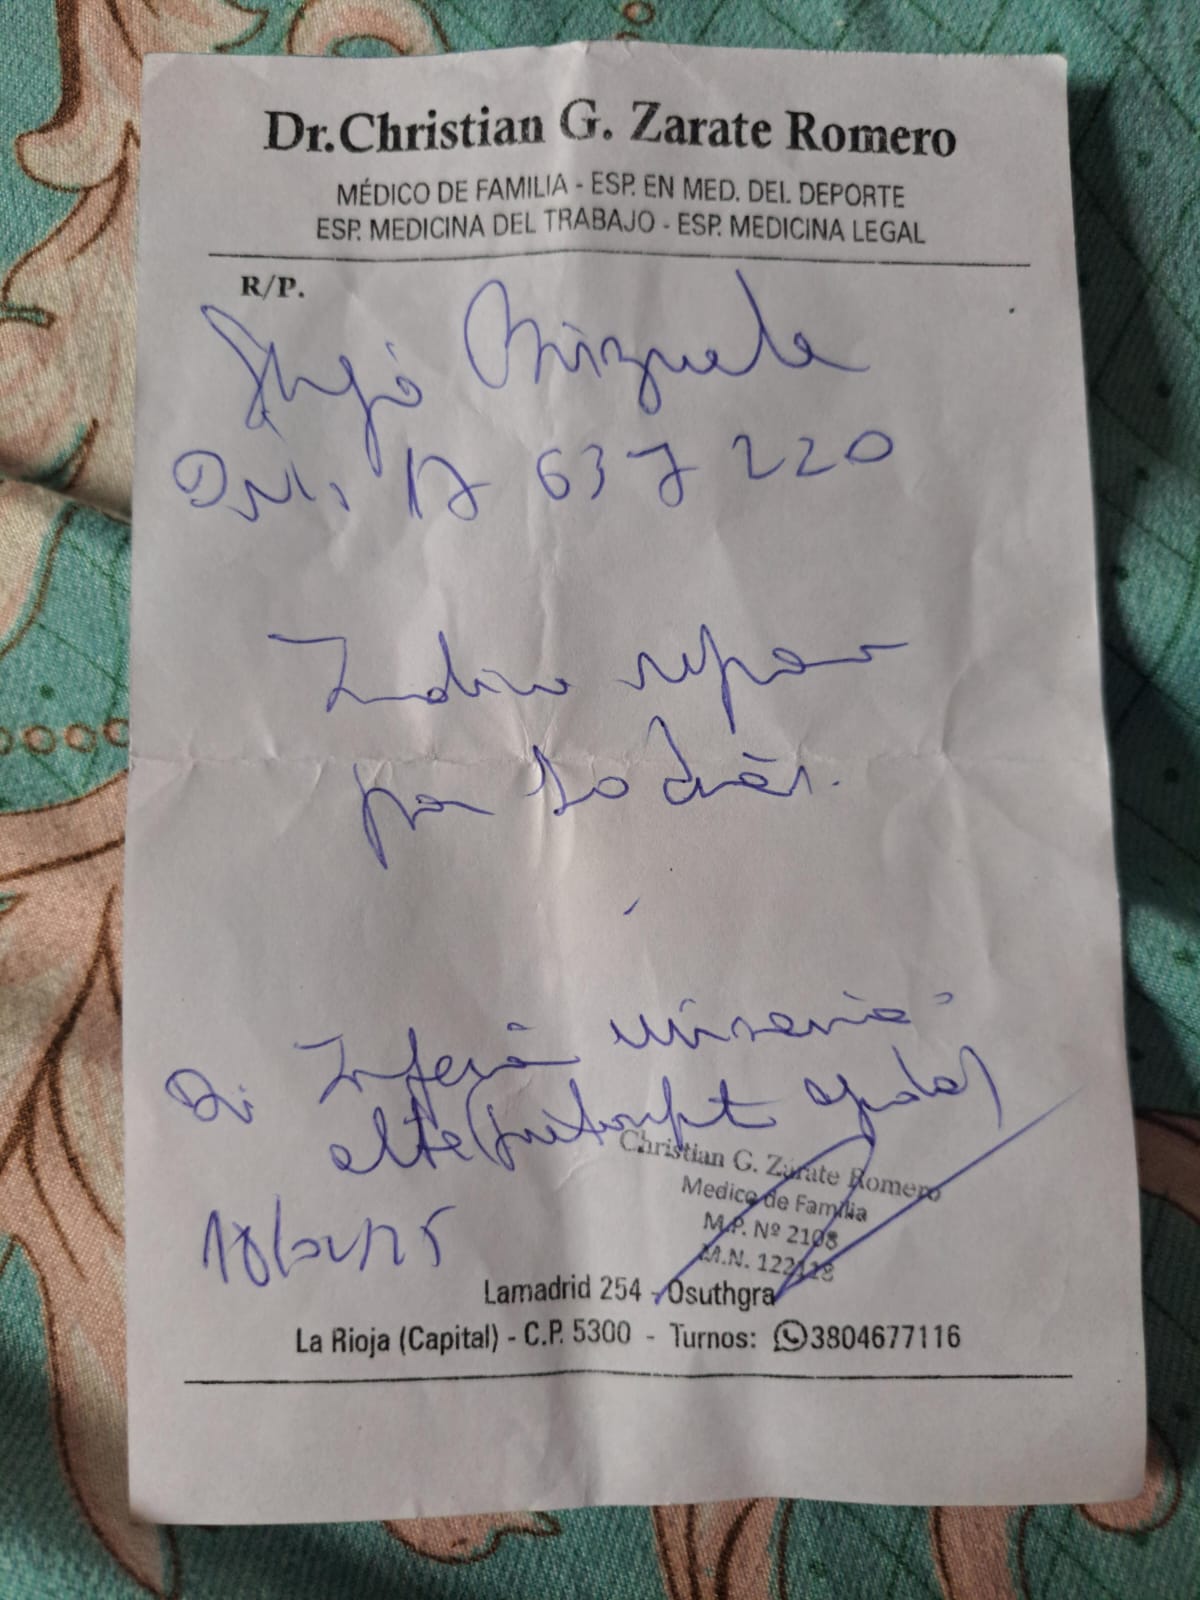 Dr. Christian G. Zarate Romero
MÉDICO DE FAMILIA - ESP. EN MED. DEL DEPORTE
ESP. MEDICINA DEL TRABAJO - ESP. MEDICINA LEGAL
R/P.
Brizuela
17 637 220
Indico reposo
por dias.
Infección urinaria
alta
Christian G. Zárate Romero
Medico de Familia
M.P. Nº 2108
M.N. 122418
Lamadrid 254 - Osuthgra
La Rioja (Capital) - C.P. 5300 - Turnos: 3804677116